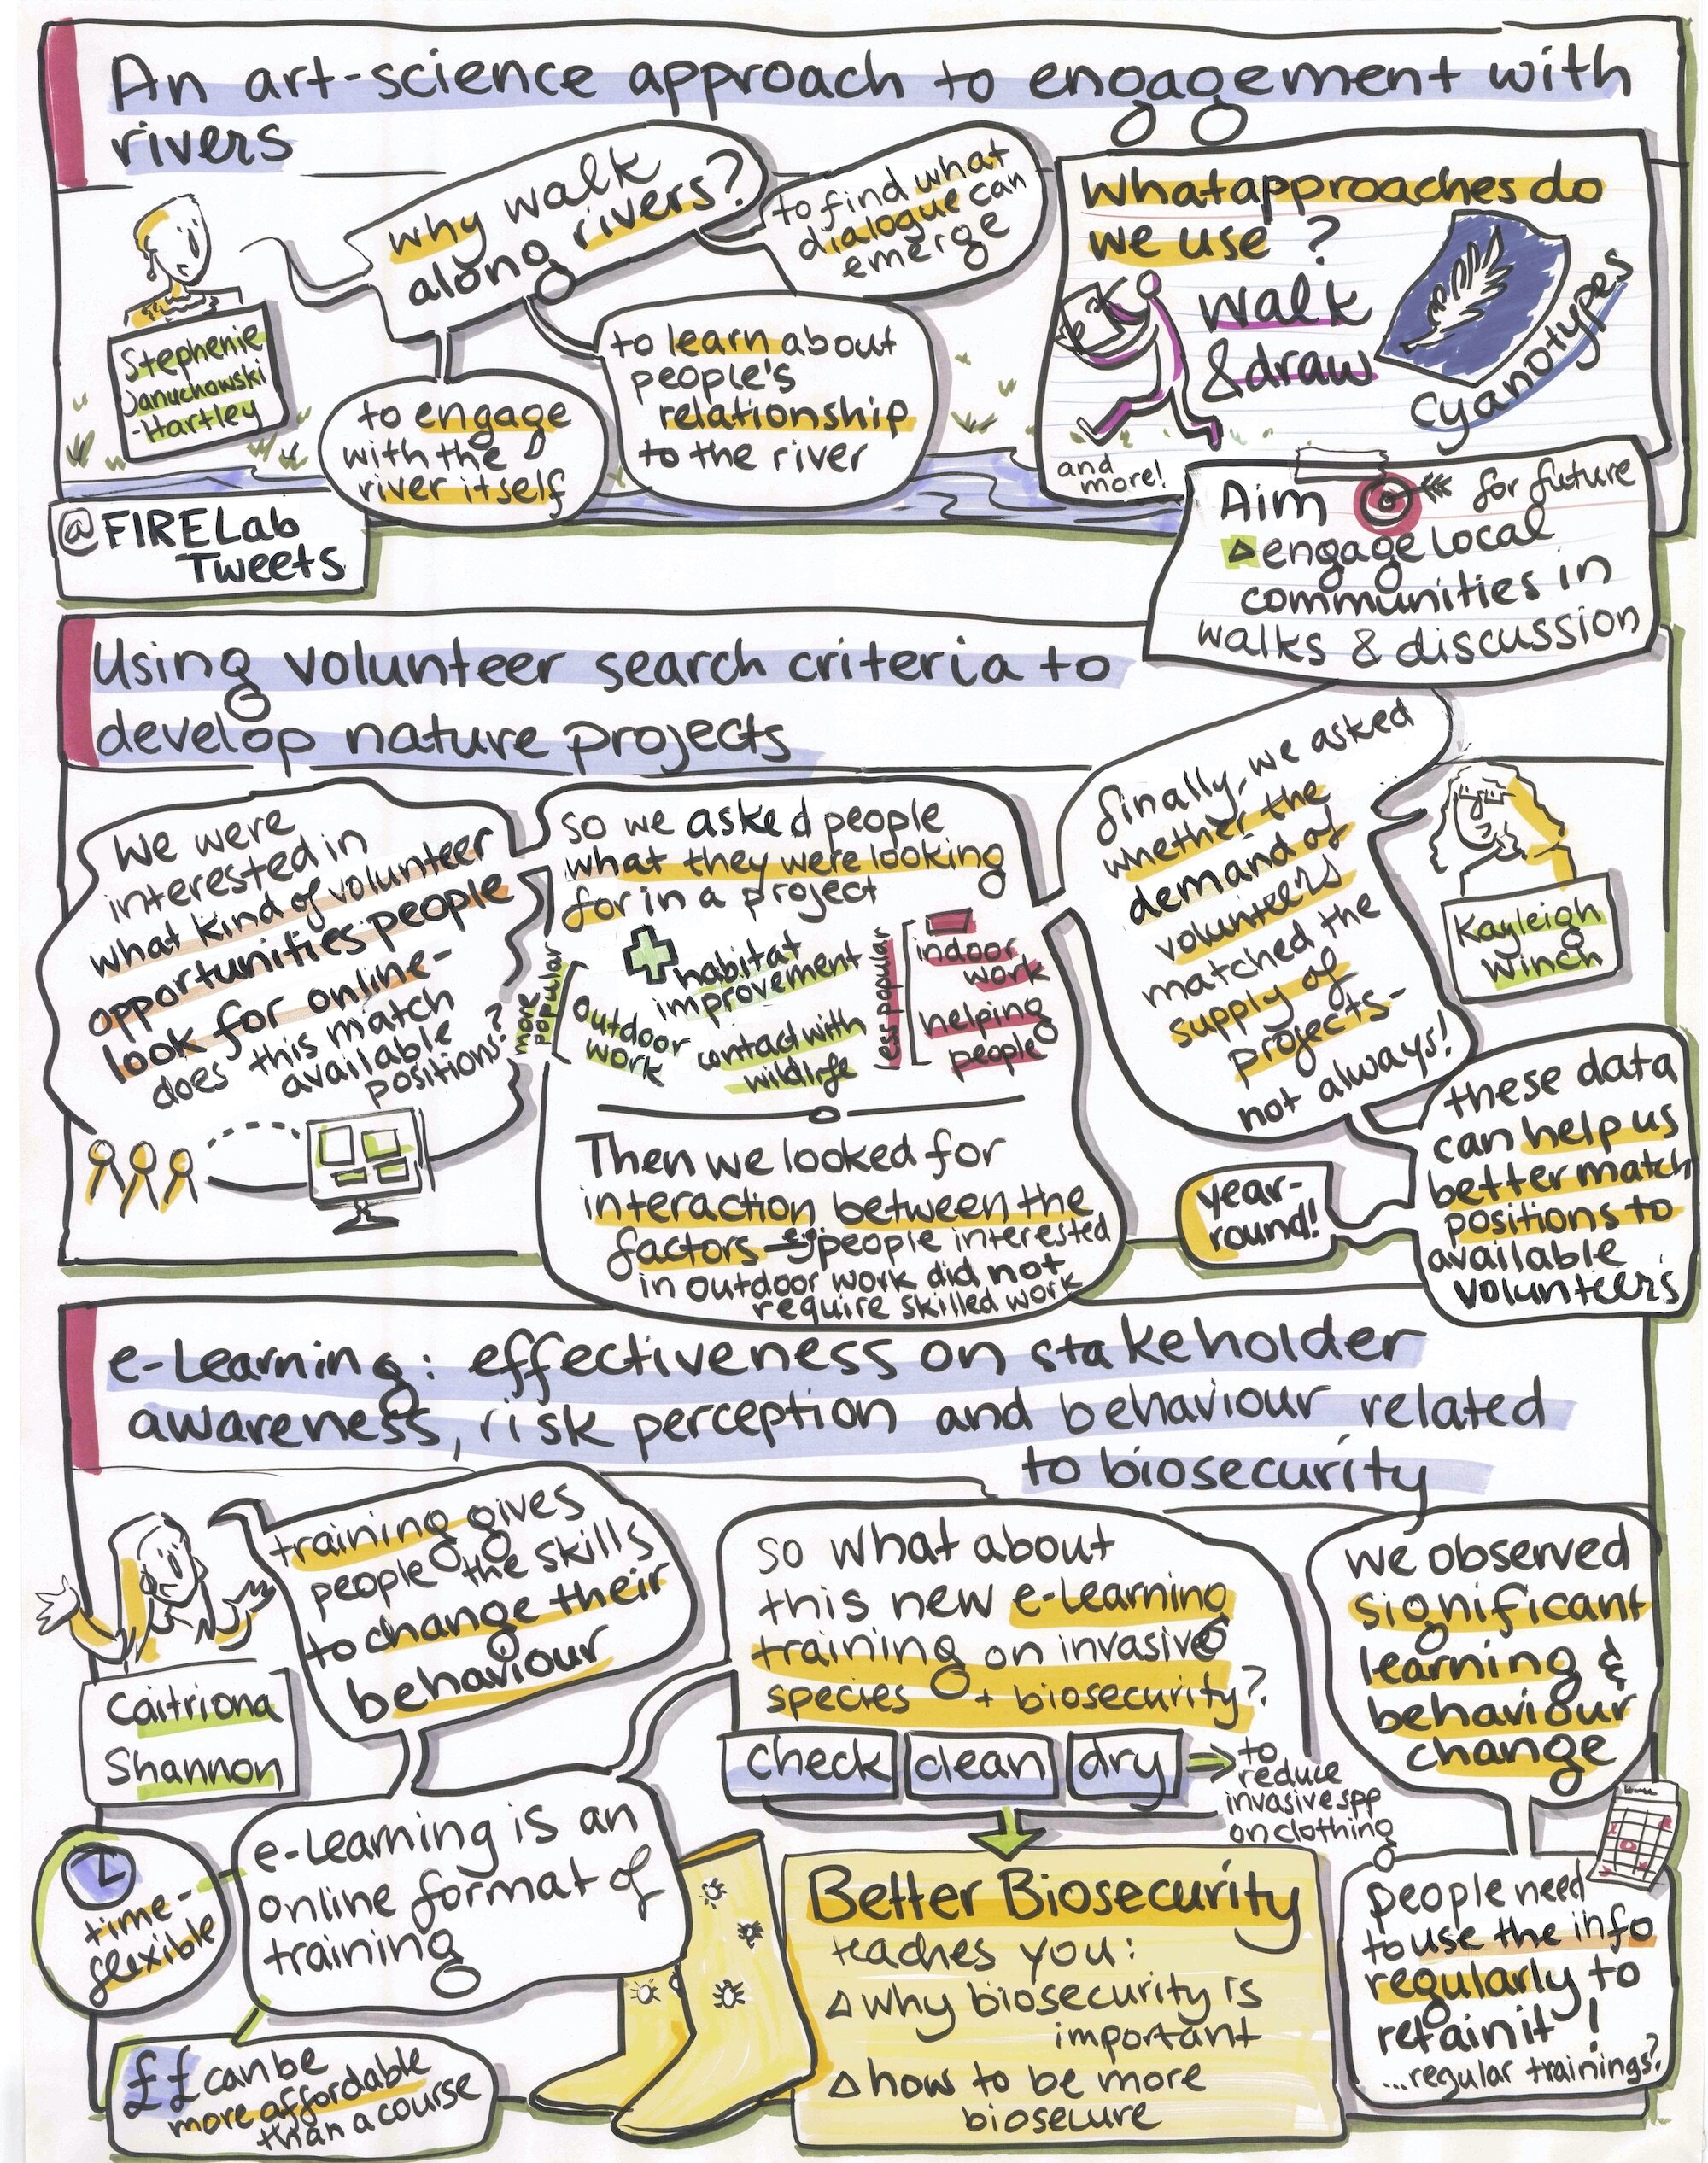 An art-science approach to engagement with
rivers
Stephenie
Januchowski
-Hartley
why walk
along rivers?
to find what
dialogue can
emerge
to engage
with the
river itself
to learn about
people's
relationship
to the river
What approaches do
we use?
walk
& draw
cyanotypes
and
more!
@FIRELab
Tweets
Aim for future
engage local
communities in
walks & discussion
Using volunteer search criteria to
develop nature projects
We were
interested in
what kind of volunteer
opportunities people
look for online-
does this match
available
positions?
so we asked people
what they were looking
for in a project
more
popular
habitat
improvement
outdoor
work
contact with
wildlife
less popular
indoor
work
helping
people
Then we looked for
interaction between the
factors - eg people interested
in outdoor work did not
require skilled work
finally, we asked
whether the
demand of
volunteers
matched the
supply of
projects-
not always!
Kayleigh
Winch
these data
can help us
better match
positions to
available
volunteers
year-
round!
e-Learning: effectiveness on stakeholder
awareness, risk perception and behaviour related
to biosecurity
Caitriona
Shannon
training gives
people the skills
to change their
behaviour
e-Learning is an
online format of
training
time-
flexible
££ can be
more affordable
than a course
so what about
this new e-Learning
training on invasive
species + biosecurity?
check clean dry
to
reduce
invasive spp
on clothing
Better Biosecurity
teaches you:
why biosecurity is
important
how to be more
biosecure
we observed
significant
learning &
behaviour
change
people need
to use the info
regularly to
retain it!
...regular trainings?